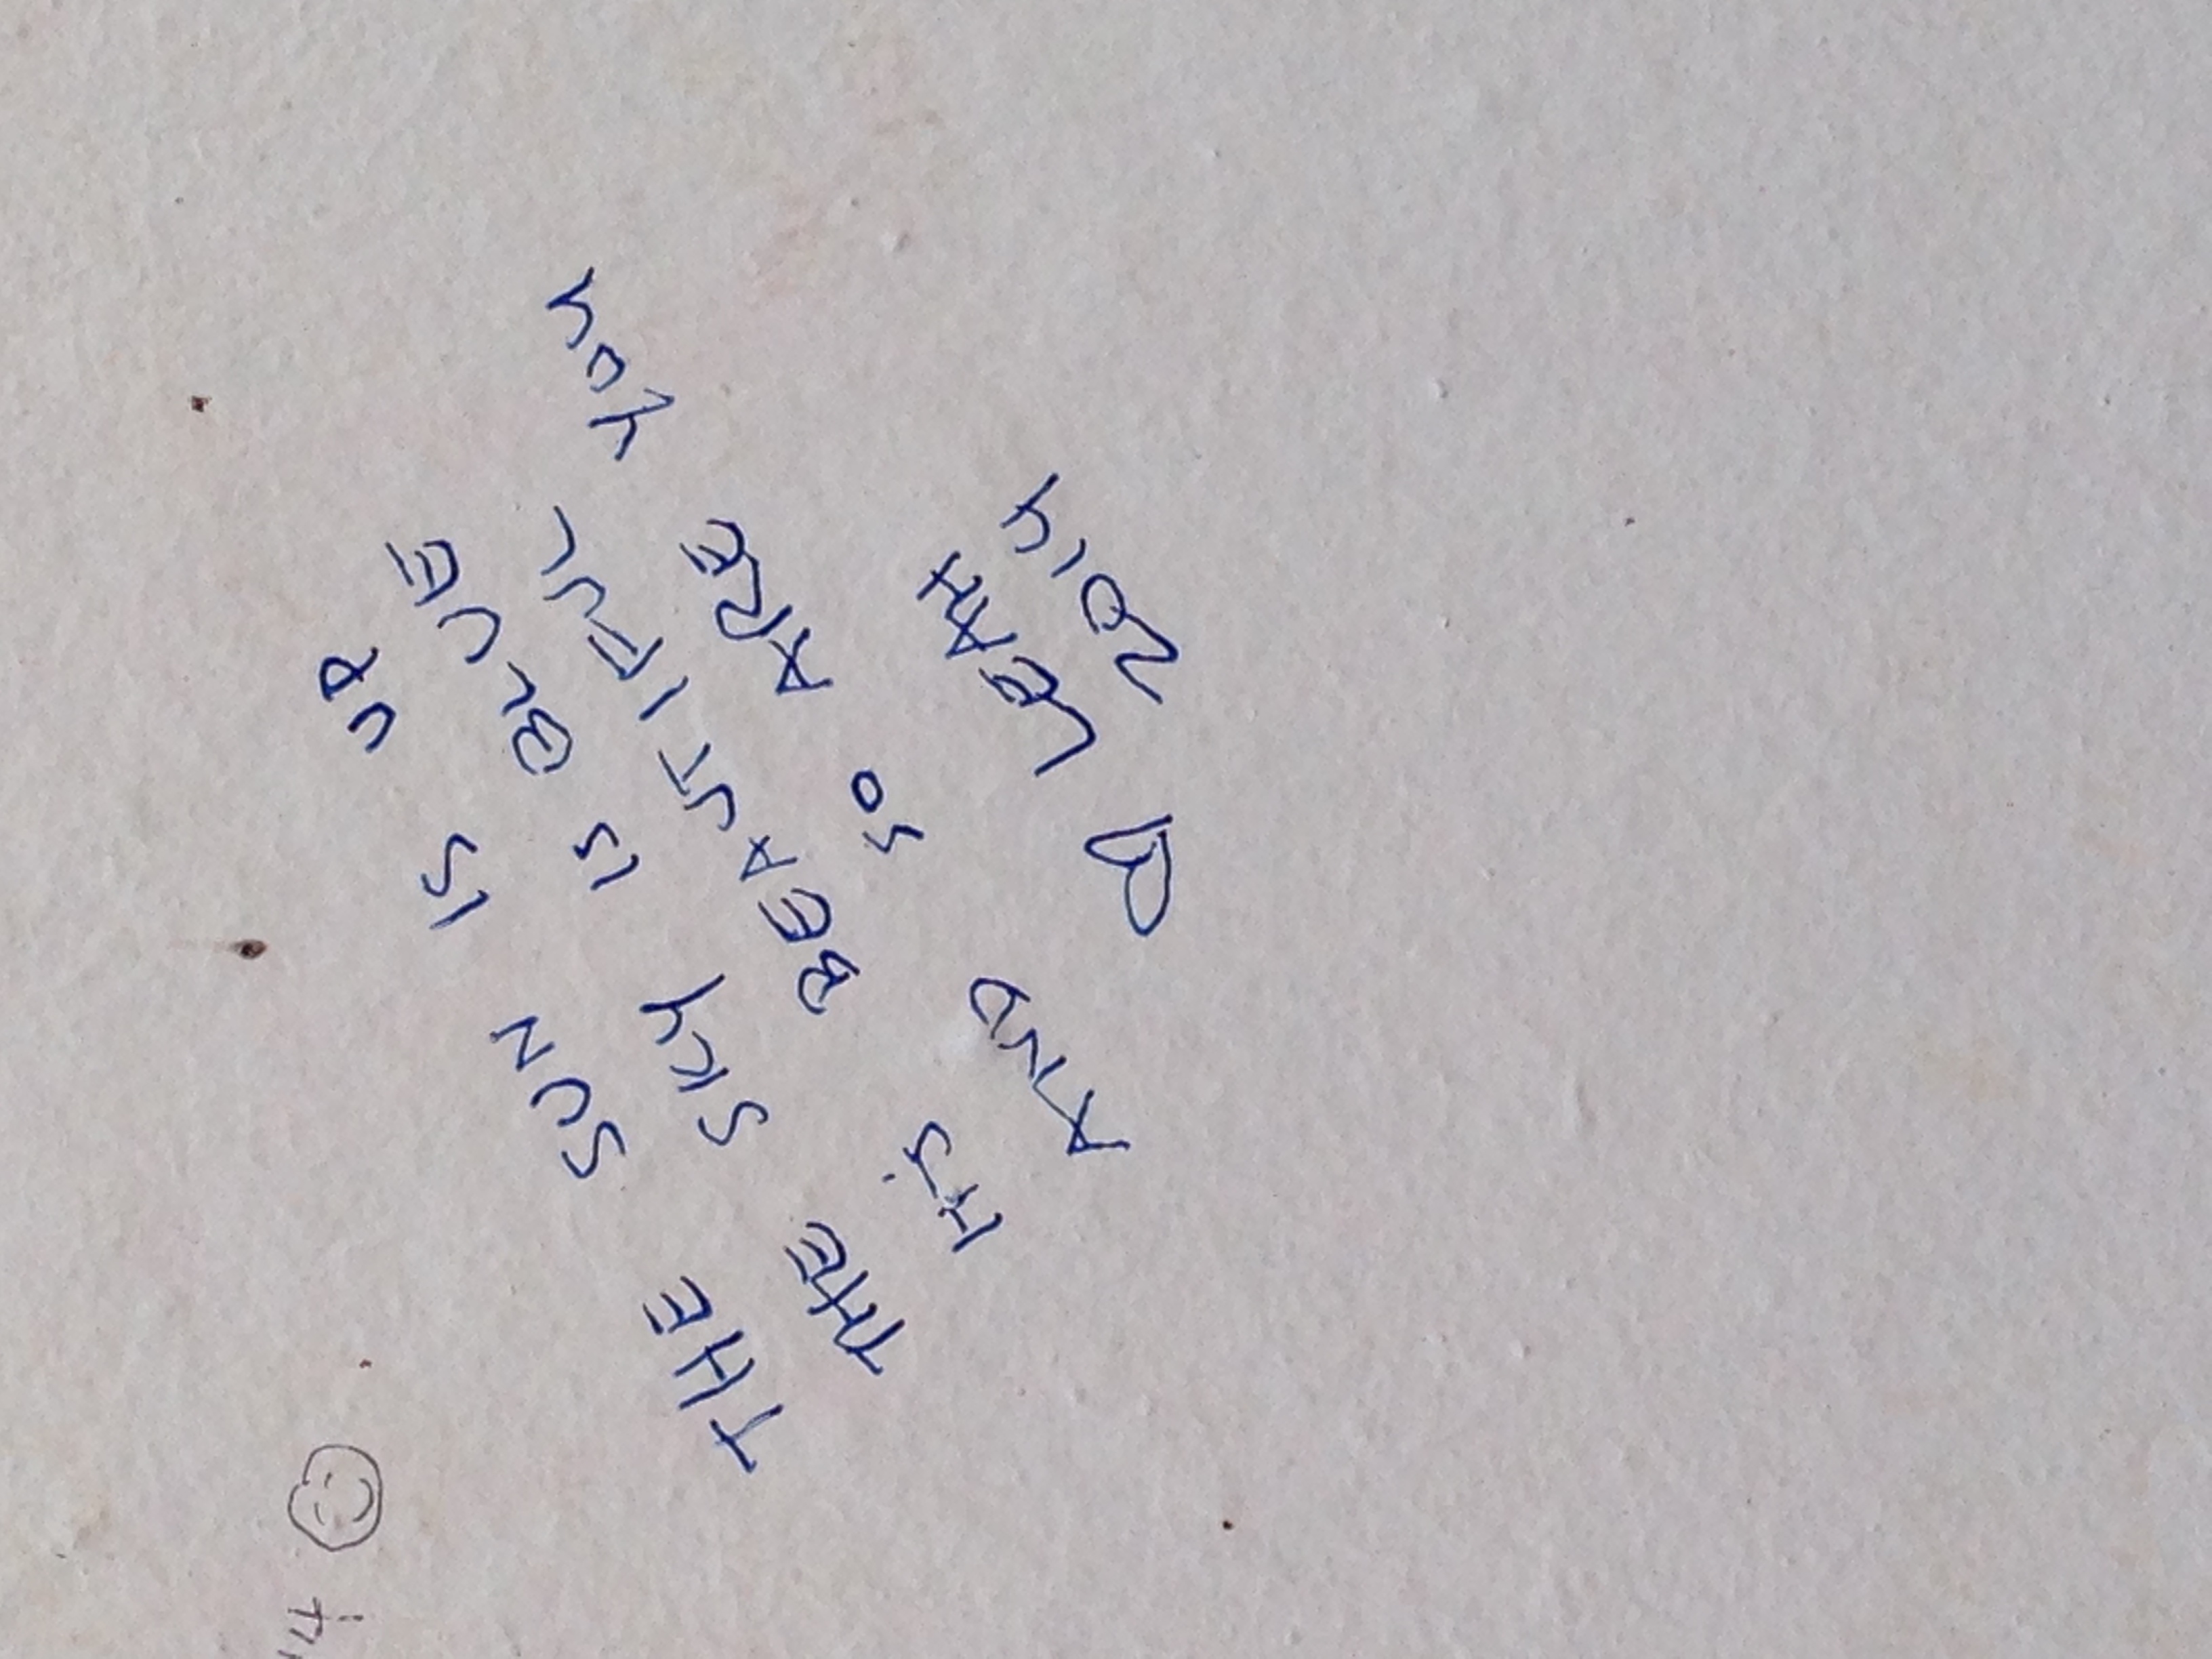 '14
THE SUN IS UP
THE SKY IS BLUE
It's BEAUTIFUL
AND SO ARE YOU
♡ LEAH
2014